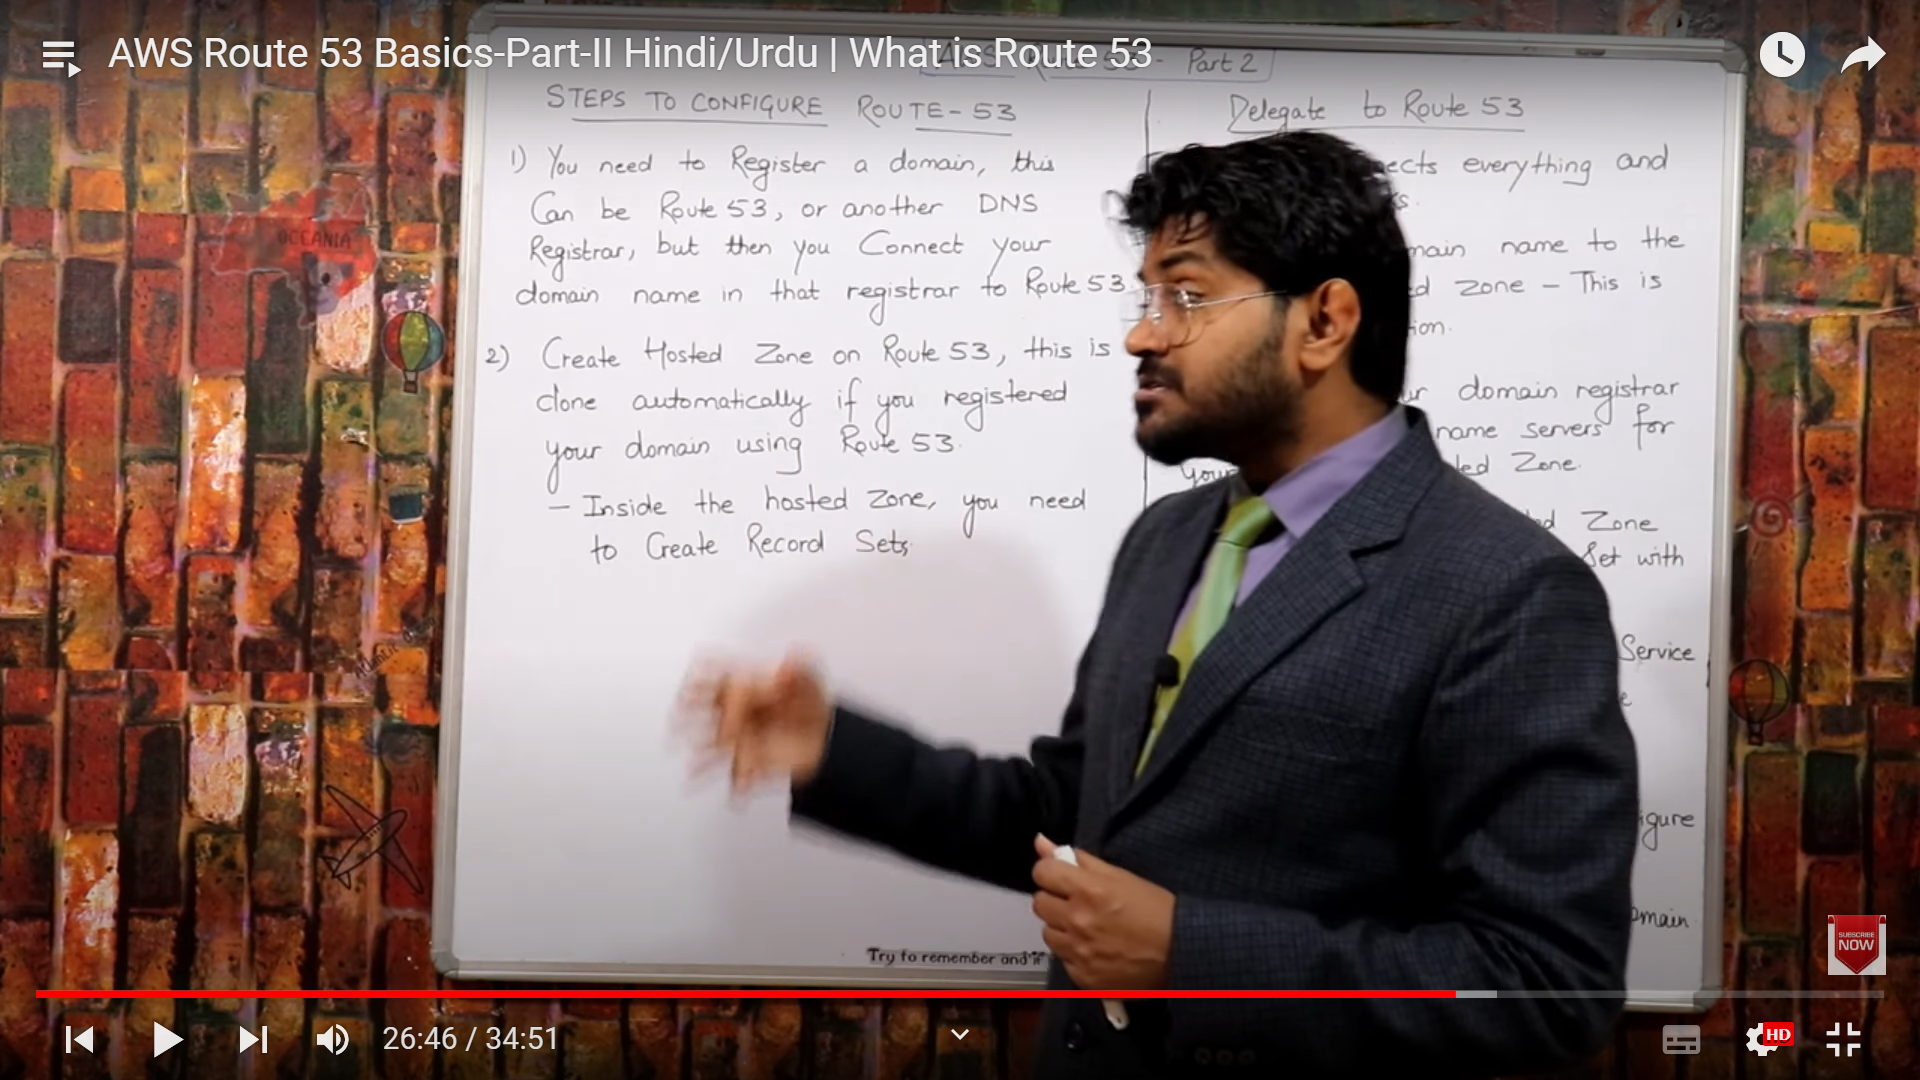 AWS Route 53 Basics-Part-II Hindi/Urdu | What is Route 53
Part 2
STEPS TO CONFIGURE ROUTE-53
1) You need to Register a domain, this
Can be Route 53, or another DNS
Registrar, but then you Connect your
domain name in that registrar to Route 53.
2) Create Hosted Zone on Route 53, this is
done automatically if you registered
your domain using Route 53.
- Inside the hosted Zone, you need
to Create Record Sets.
Delegate to Route 53
everything and
name to the
Zone - This is
domain registrar
name servers for
your
Zone.
Zone
Set with
Service
Try to remember and
OCEANIA
SUBSCRIBE
NOW
26:46 / 34:51
HD